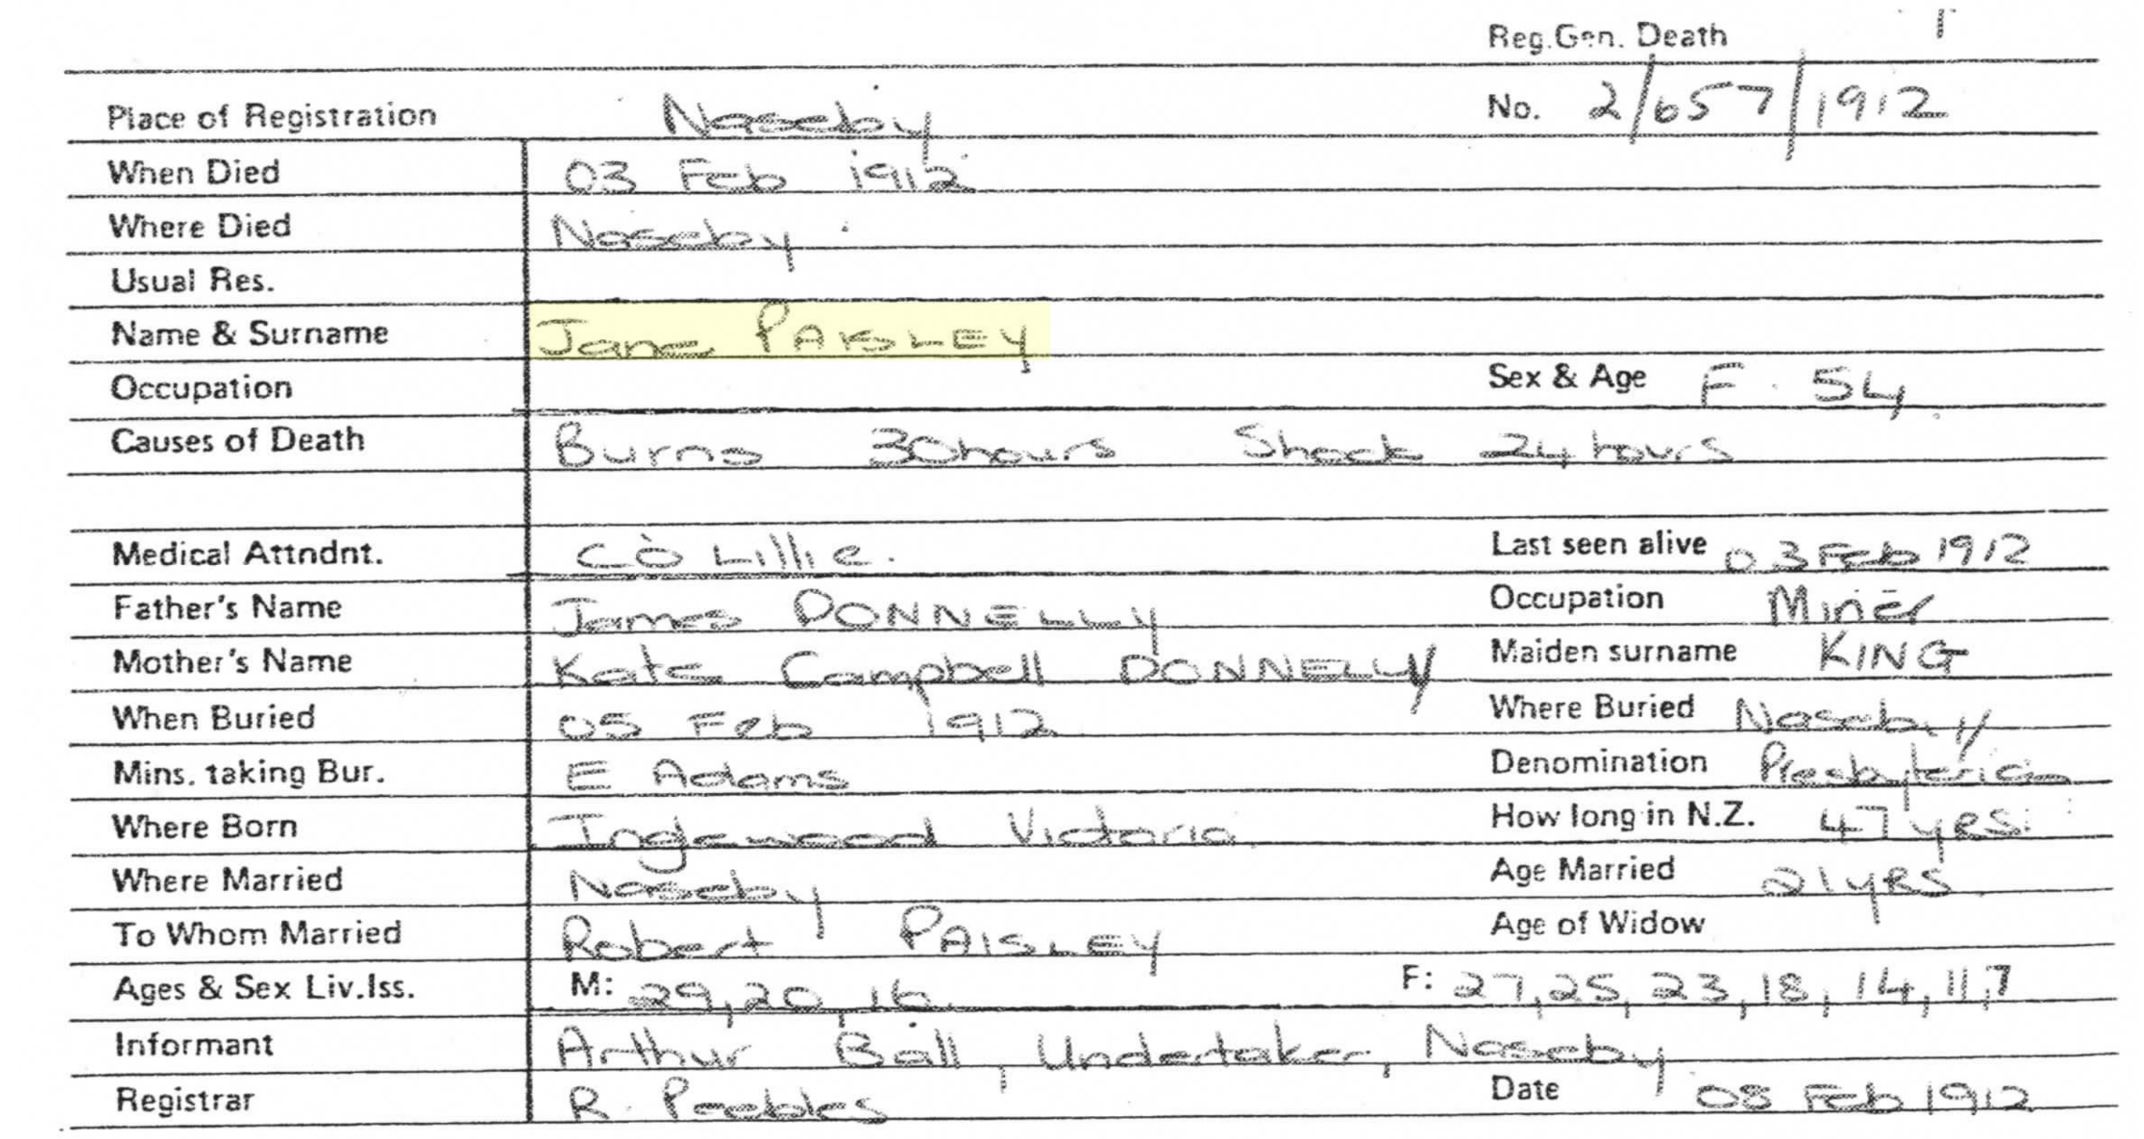 Reg.Gen. Death
Place of Registration Naseby No. 2/657/1912
When Died 03 Feb 1912
Where Died Naseby
Usual Res.
Name & Surname Jane PAISLEY
Occupation Sex & Age F. 54
Causes of Death Burns 30hours Shock 24 hours
Medical Attndnt. CO Lillie. Last seen alive 03 Feb 1912
Father's Name James DONNELLY Occupation Miner
Mother's Name Kate Campbell DONNELLY Maiden surname KING
When Buried 05 Feb 1912 Where Buried Naseby
Mins. taking Bur. E Adams Denomination Presbyterian
Where Born Inglewood Victoria How long in N.Z. 47 yrs.
Where Married Naseby Age Married 21 yrs
To Whom Married Robert PAISLEY Age of Widow
Ages & Sex Liv.Iss. M: 29, 20, 16. F: 27, 25, 23, 18, 14, 11, 7
Informant Arthur Ball, Undertaker, Naseby
Registrar R. Peebles Date 08 Feb 1912